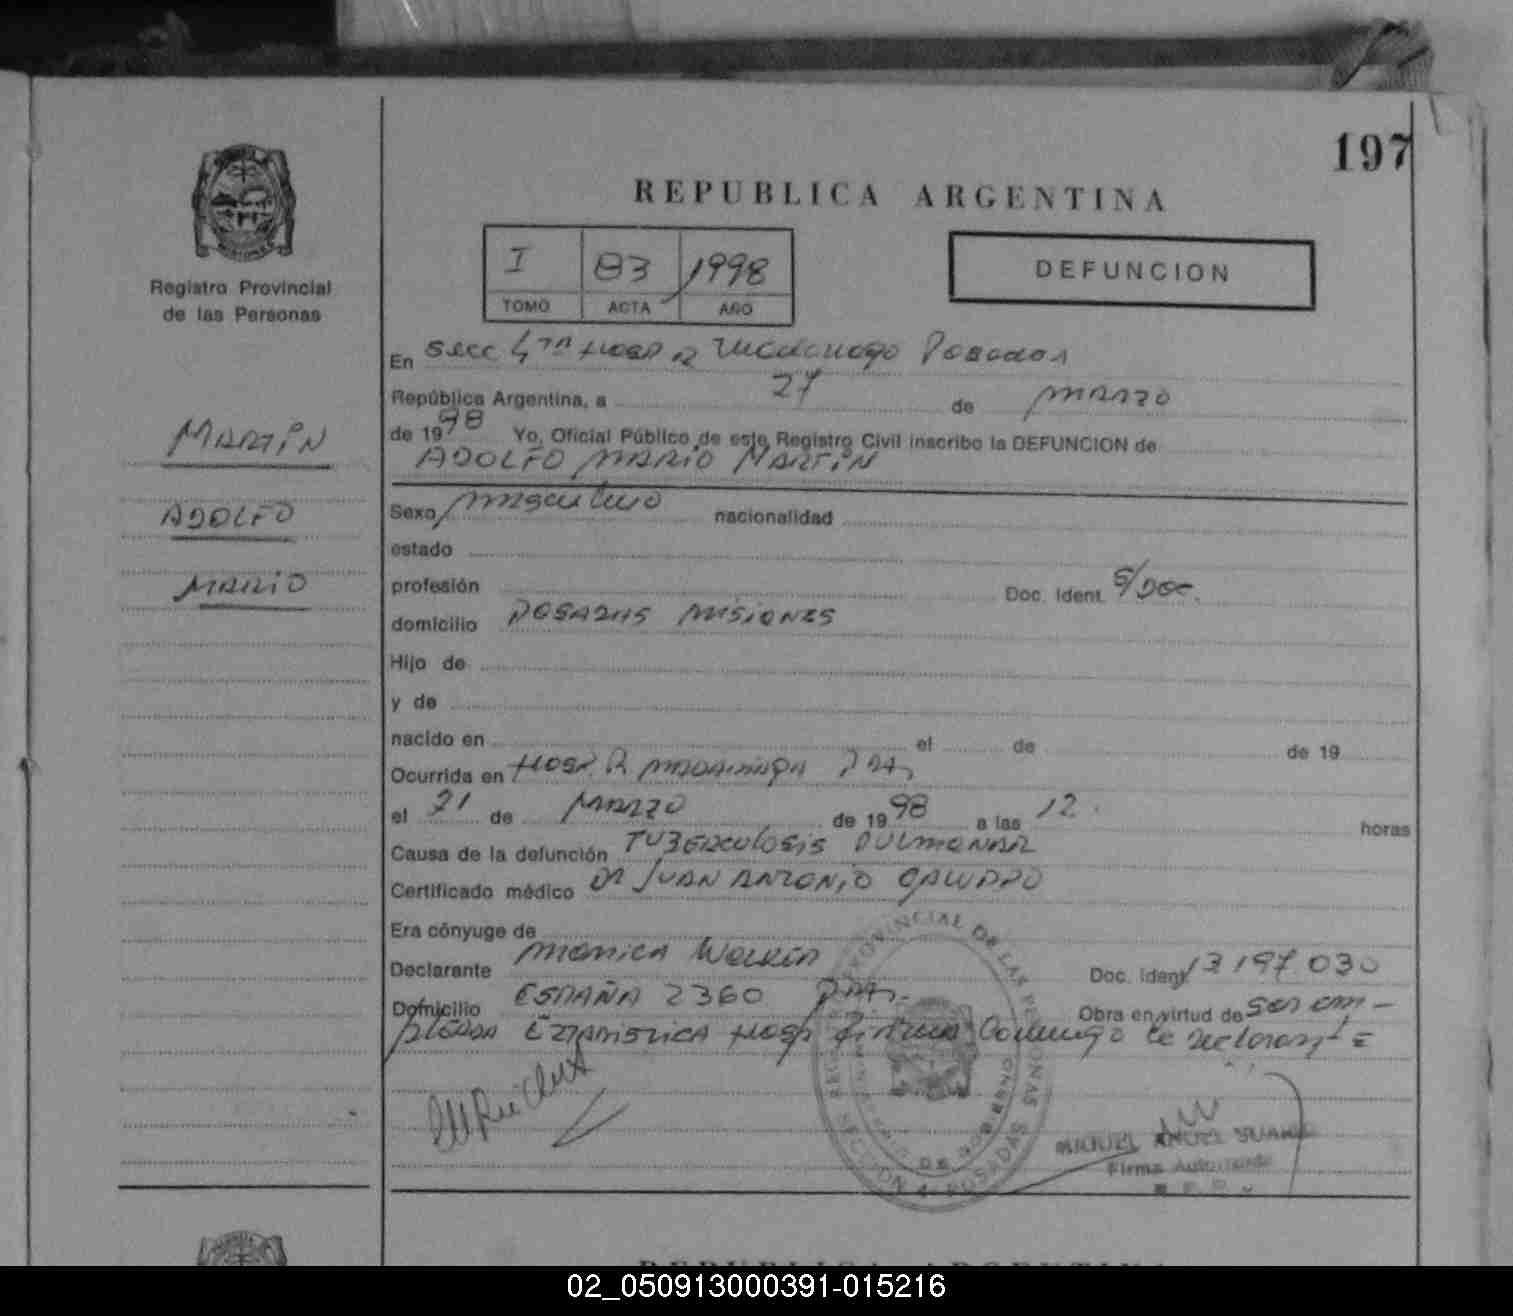 197
REPUBLICA ARGENTINA
Registro Provincial
de las Personas
I 83 1998
TOMO ACTA AÑO
DEFUNCION
En Secc 4ta Hosp R Madariaga Posadas
República Argentina, a 27 de MARZO
de 1998 Yo, Oficial Público de este Registro Civil inscribo la DEFUNCION de
ADOLFO MARIO MARTIN
MARTIN
ADOLFO
MARIO
Sexo masculino nacionalidad
estado
profesión Doc. Ident. S/Doc.
domicilio POSADAS MISIONES
Hijo de
y de
nacido en el de de 19
Ocurrida en HOSP. R MADARIAGA Pdas
el 21 de MARZO de 1998 a las 12. horas
Causa de la defunción TUBERCULOSIS PULMONAR
Certificado médico Dr JUAN ANTONIO
Era cónyuge de
Declarante MONICA Doc. Ident 13197030
Domicilio ESPAÑA 2360 Pdas. Obra en virtud de ser em-
pleada ESTADISTICA Hosp la declarante
REGISTRO PROVINCIAL DE LAS PERSONAS
SECCION 4 POSADAS
MIGUEL ANGEL
Firma Autorizada
REPUBLICA ARGENTINA
02_050913000391-015216